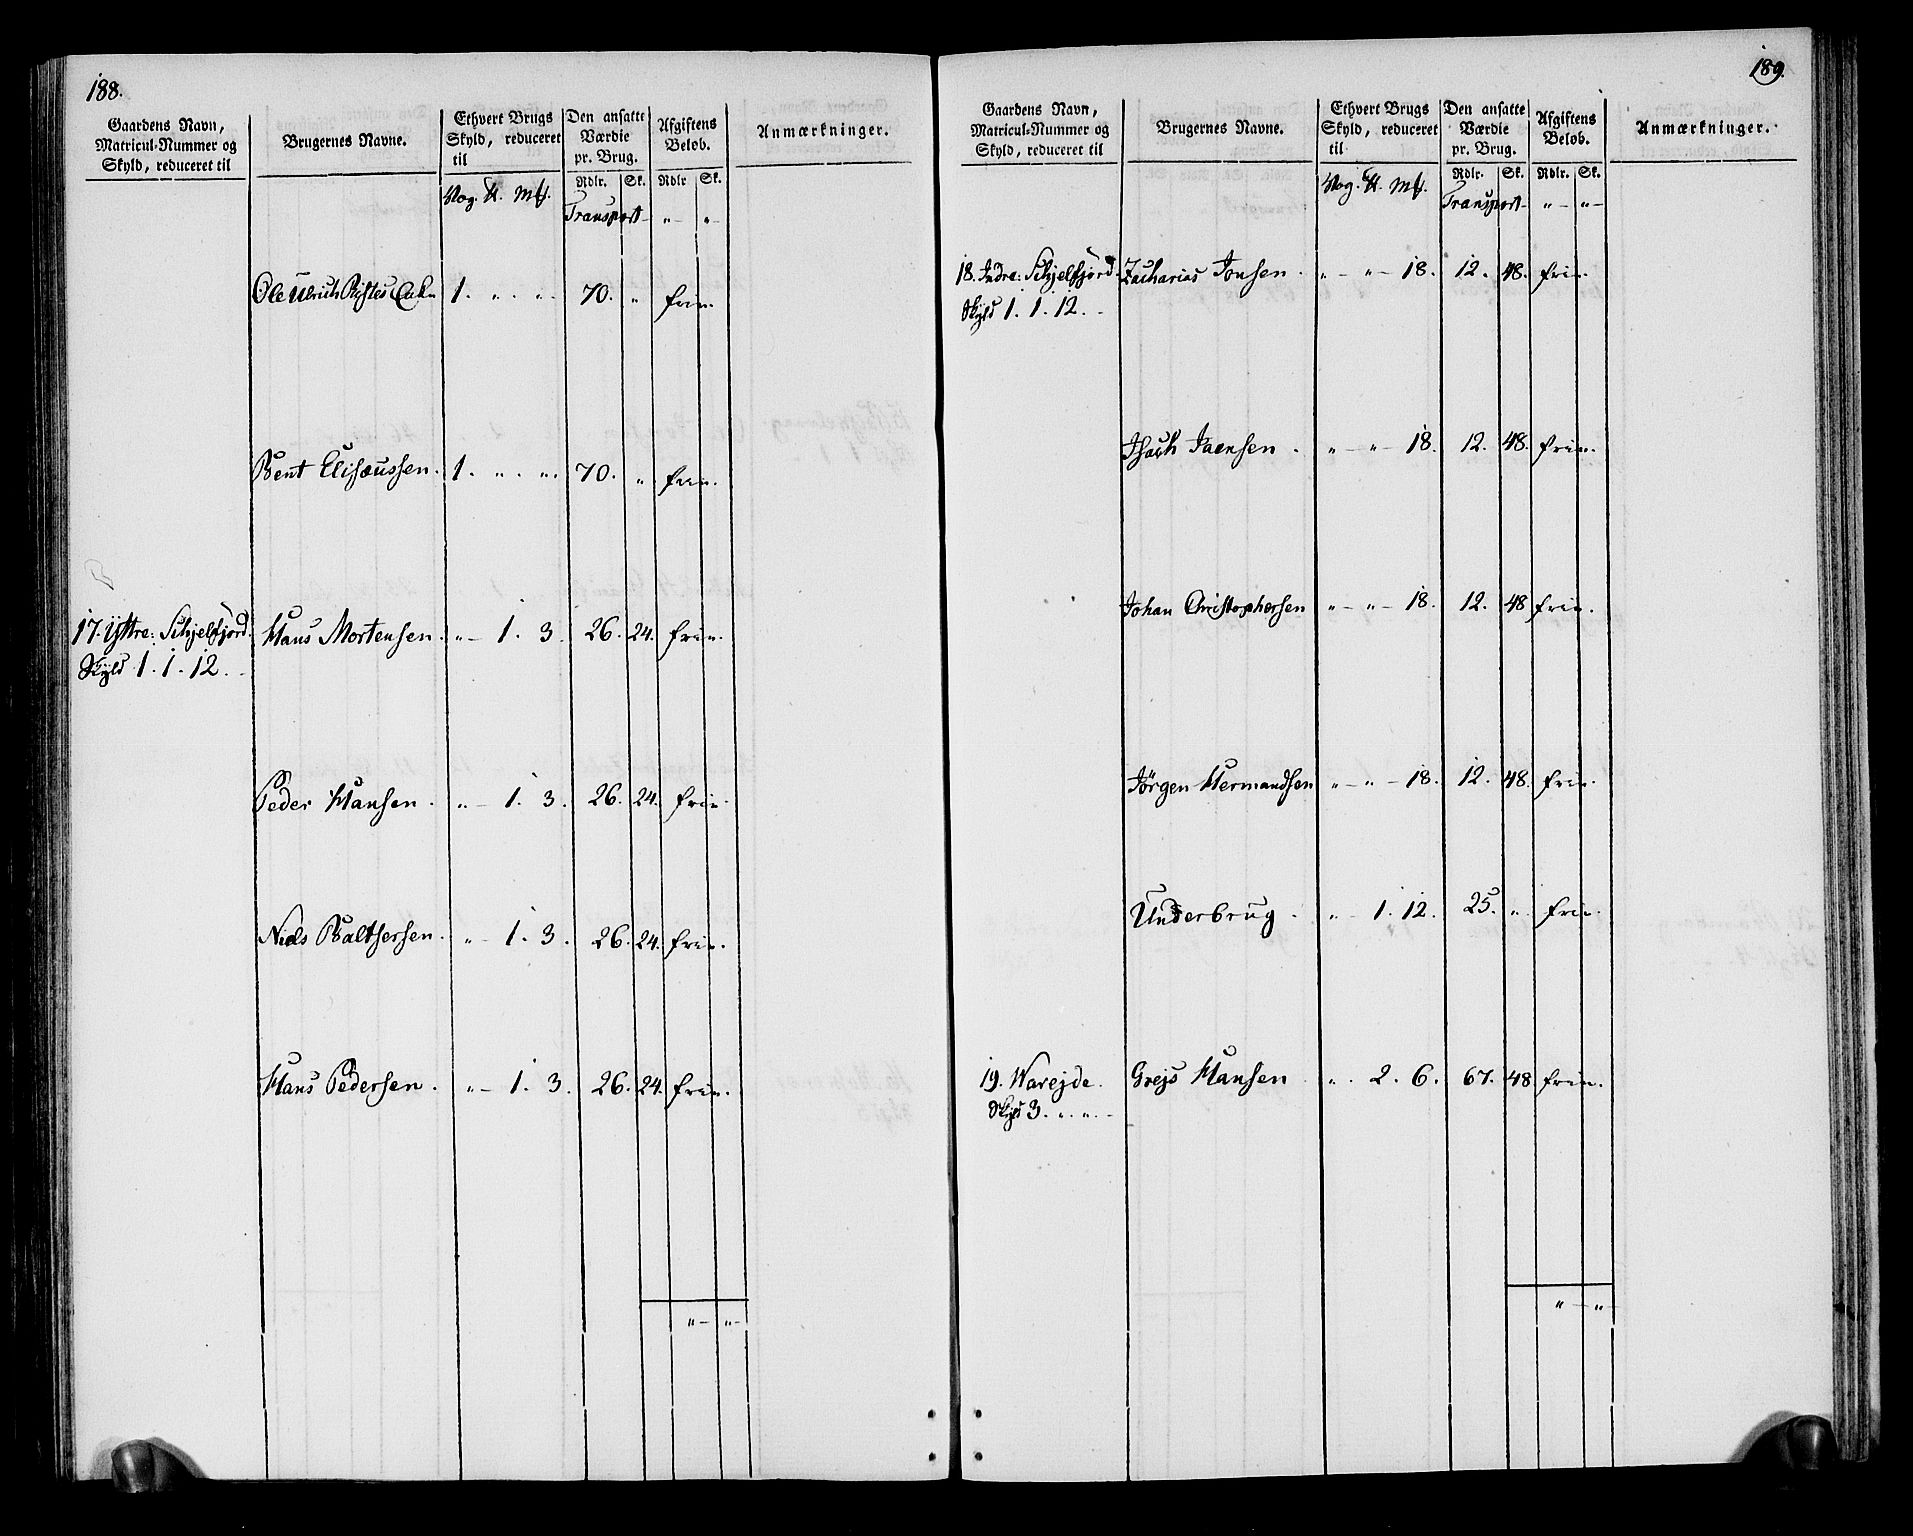 188.
Gaardens Navn, Matricul-Nummer og Skyld, reduceret til
Brugernes Navne.
Ethvert Brugs Skyld, reduceret til
Den ansatte Værdie pr. Brug.
Afgiftens Beløb.
Anmærkninger.
Rdlr. Sk. Rdlr Sk.
Vog. Mk.
Transport - „ - „ -
Ole Ulrich 1. „ . „ . 70. „ frie.
Bent Elisæussen. 1. „ . „ . 70. „ frie.
17. Yttre: Schjelfjord. Hans Mortensen. „ - 1. 3. 26. 24. frie.
Skyld 1. 1. 12. -
Peder Hansen. „ - 1. 3. 26. 24. frie.
Niels Baltsersen. „ - 1. 3. 26. 24. frie.
Hans Pedersen. „ - 1. 3. 26. 24. frie.
„ - „ -
189.
Gaardens Navn, Matricul-Nummer og Skyld, reduceret til
Brugernes Navne.
Ethvert Brugs Skyld, reduceret til
Den ansatte Værdie pr. Brug.
Afgiftens Beløb.
Anmærkninger.
Rdlr. Sk. Rdlr. Sk.
Vog. Mk.
Transport - „ - „ -
18. Indre: Schjelfjord. Zacharias Jonsen. „ - „ - 18. 12. 48. frie.
Skyld 1. 1. 12. -
Isach Jaensen. „ - „ - 18. 12. 48. frie.
Johan Christophersen „ - „ - 18. 12. 48 frie.
Jörgen Hermandsen „ - „ - 18. 12. 48. frie.
Underbrug. „ - 1. 12. 25. „ frie.
19. Warejde. Grejs Hansen. „ . 2. 6. 67. 48 frie.
Skyld 3. „ . „ . -
„ - „ -